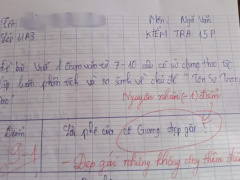 Môn: Ngữ Văn
Lớp 11A3 KIỂM TRA 15P
Đề bài: Viết 1 đoạn văn từ 7-10 câu có sử dụng thao tác
lập luận phân tích và so sánh về chủ đề "Tôn Sư Trọng
Nguyên nhân (-1) điểm
Điểm Lời phê của cô Giang đẹp gái!
9-1 - Đẹp gái nhưng không dùng thêm